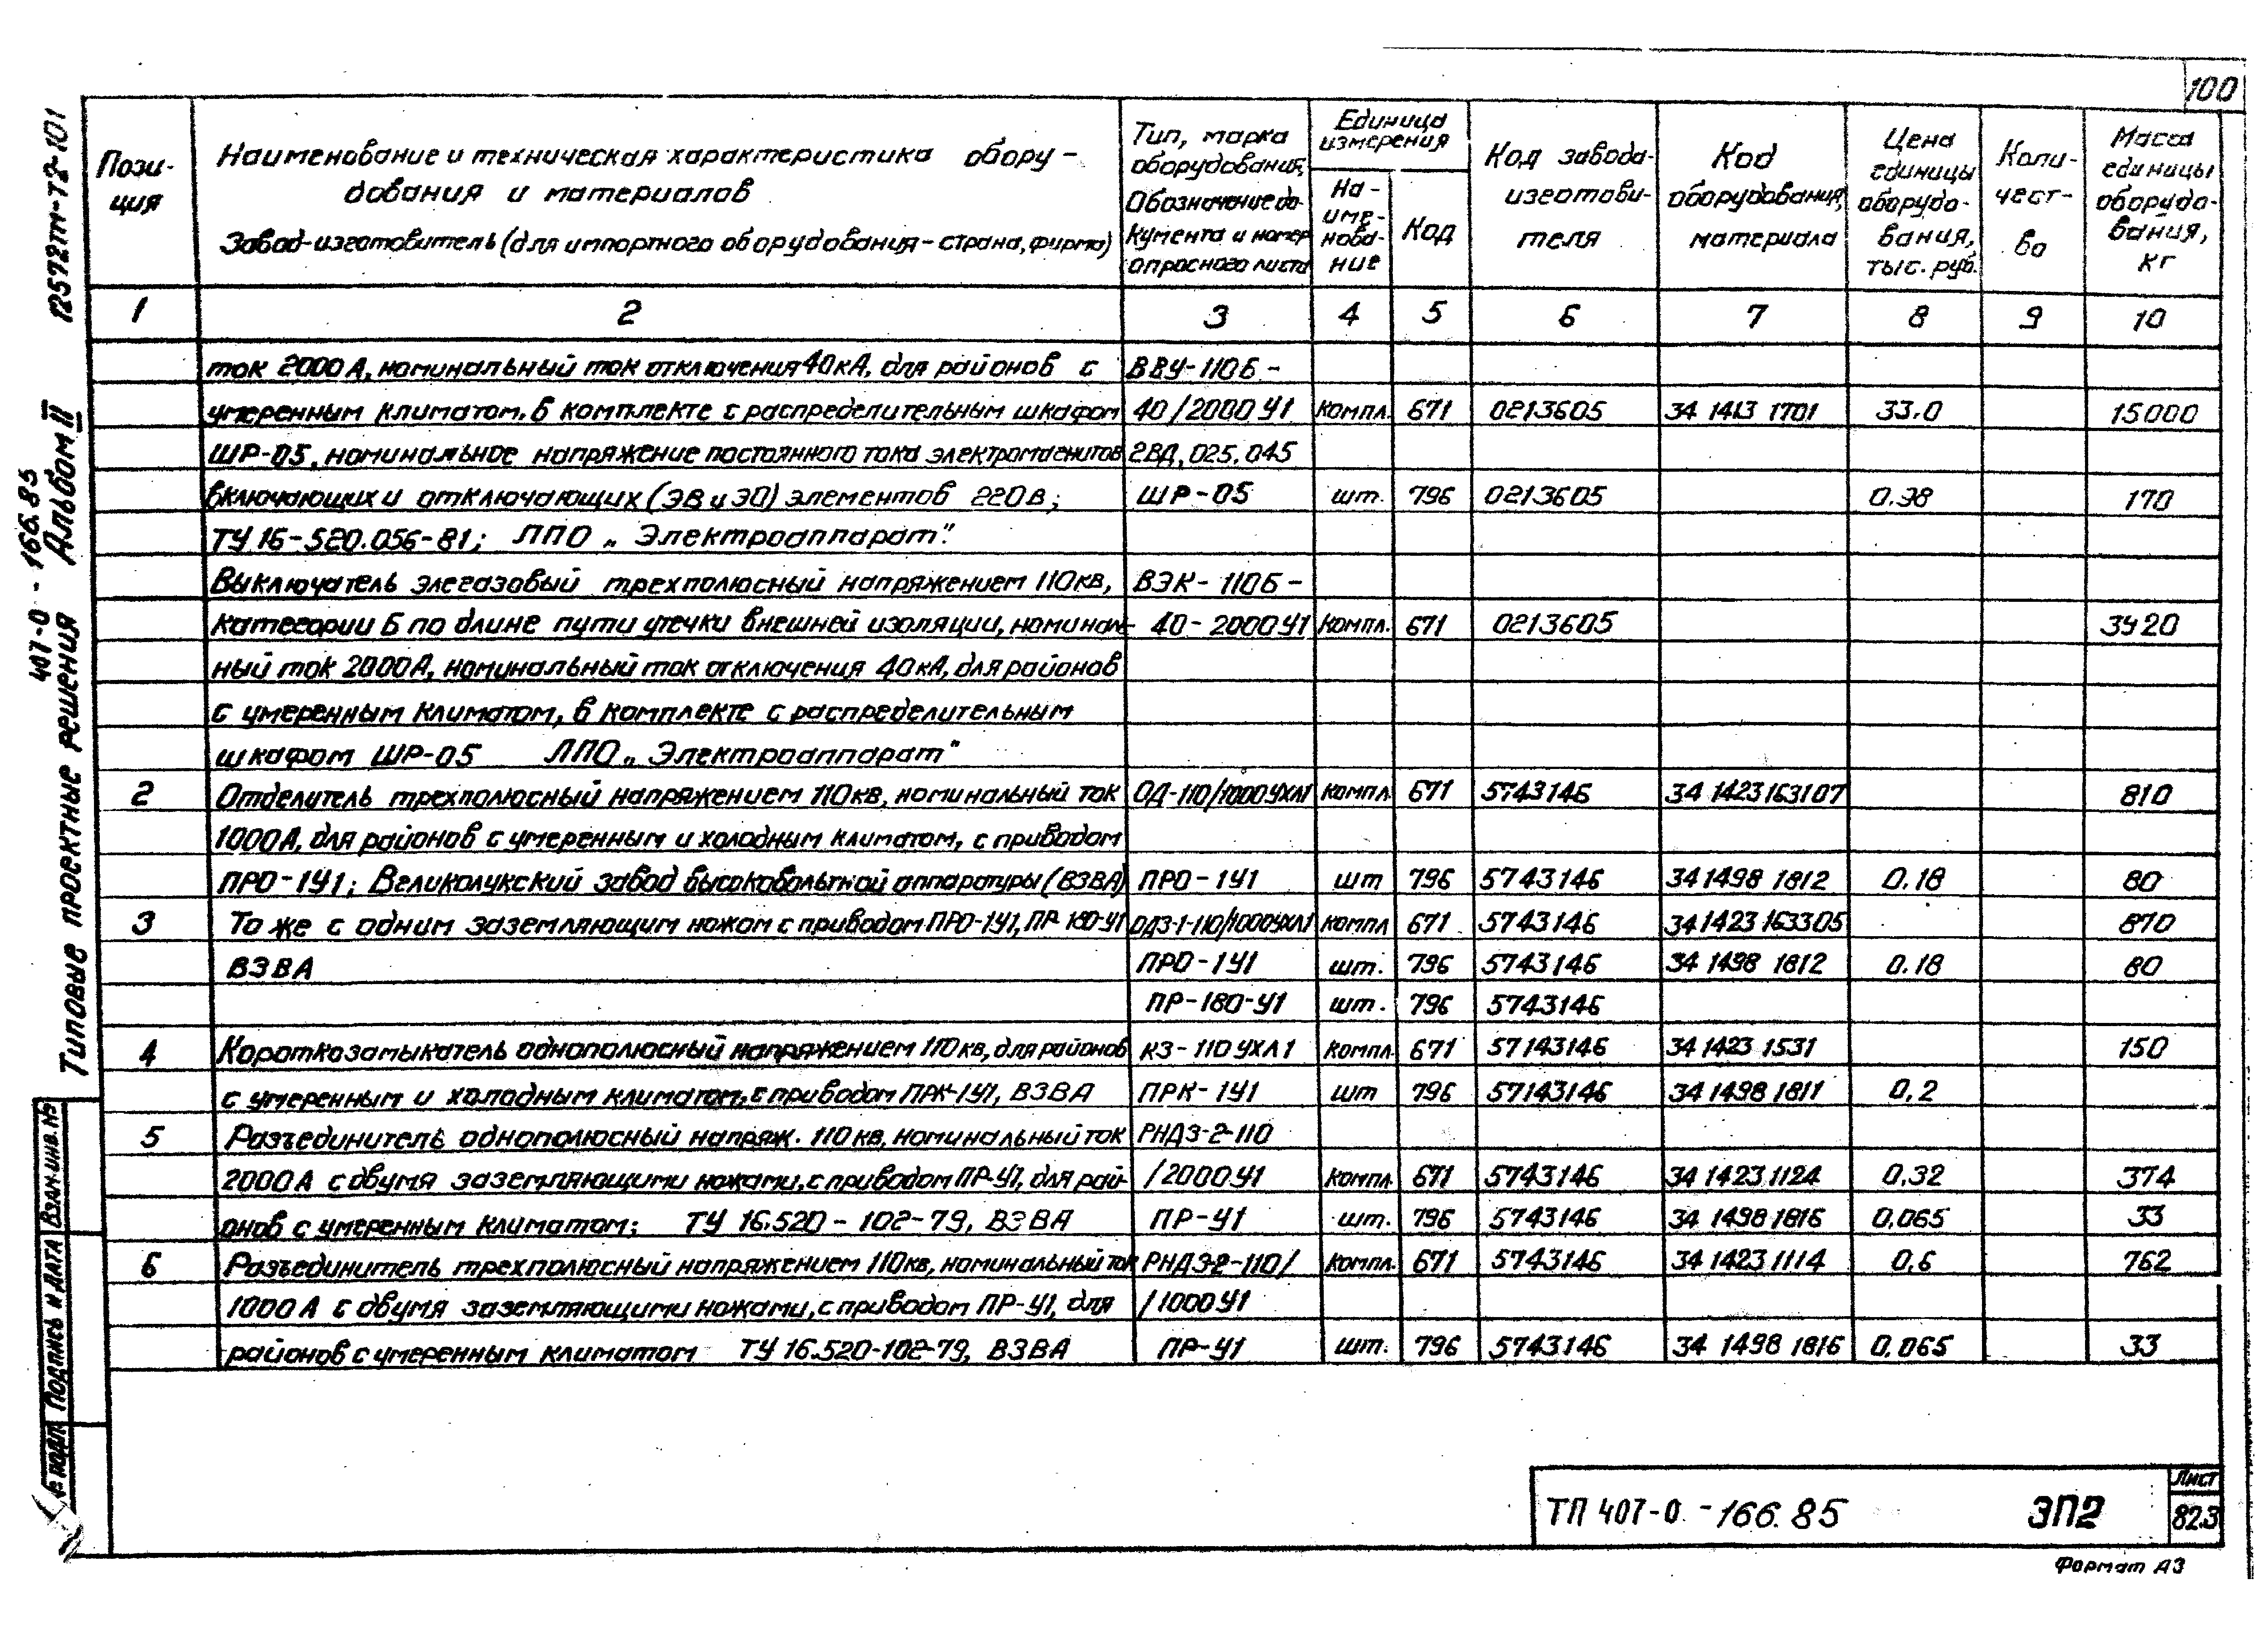 100
12572тм-т2-101
407-0-166.85
Альбом II
Типовые проектные решения
Взам.инв.№
Подпись и дата
№ подл
Пози-
ция
Наименование и техническая характеристика обору-
дования и материалов
Завод-изготовитель (для импортного оборудования-страна, фирма)
Тип, марка
оборудования,
Обозначение до-
кумента и номер
опросного листа
Единица
измерения
На-
име-
нова-
ние
Код
Код завода-
изготови-
теля
Код
оборудования,
материала
Цена
единицы
оборудо-
вания,
тыс. руб.
Коли-
чест-
во
Масса
единицы
оборудо-
вания,
кг
1 2 3 4 5 6 7 8 9 10
ток 2000А, номинальный ток отключения 40кА, для районов с ВВУ-110Б-
умеренным климатом. в комплекте с распределительным шкафом 40/2000У1 компл. 671 0213605 34 1413 1701 33.0 15000
ШР-05, номинальное напряжение постоянного тока электромагнитов 2ВД.025.045
включающих и отключающих (ЭВ и ЭО) элементов 220в; ШР-05 шт. 796 0213605 0.98 170
ТУ 16-520.056-81; ЛПО „Электроаппарат".
Выключатель элегазовый трехполюсный напряжением 110кв, ВЭК-110Б-
категории Б по длине пути утечки внешней изоляции, номиналь- 40-2000У1 компл. 671 0213605 3420
ный ток 2000А, номинальный ток отключения 40кА, для районов
с умеренным климатом, в комплекте с распределительным
шкафом ШР-05 ЛПО „Электроаппарат"
2 Отделитель трехполюсный напряжением 110кв, номинальный ток ОД-110/1000УХЛ1 компл 671 5743146 34 1423163107 810
1000А, для районов с умеренным и холодным климатом, с приводом
ПРО-1У1; Великолукский завод высоковольтной аппаратуры (ВЗВА) ПРО-1У1 шт 796 5743146 34 1498 1812 0.18 80
3 То же с одним заземляющим ножом с приводом ПРО-1У1, ПР-180-У1 ОДЗ-1-110/1000УХЛ1 компл 671 5743146 34 1423 163305 870
ВЗВА ПРО-1У1 шт. 796 5743146 34 1498 1812 0.18 80
ПР-180-У1 шт. 796 5743146
4 Короткозамыкатель однополюсный напряжением 110кв, для районов КЗ-110УХЛ1 компл. 671 57143146 34 1423 1531 150
с умеренным и холодным климатом, с приводом ПРК-1У1, ВЗВА ПРК-1У1 шт 796 57143146 34 1498 1811 0,2
5 Разъединитель однополюсный напряж. 110кв, номинальный ток РНДЗ-2-110
2000А с двумя заземляющими ножами, с приводом ПР-У1, для рай- /2000У1 компл. 671 5743146 34 1423 1124 0,32 374
онов с умеренным климатом; ТУ 16.520-102-79, ВЗВА ПР-У1 шт. 796 5743146 34 1498 1816 0,065 33
6 Разъединитель трехполюсный напряжением 110кв, номинальный ток РНДЗ-2-110/ компл. 671 5743146 34 1423 1114 0,6 762
1000А с двумя заземляющими ножами, с приводом ПР-У1, для /1000У1
районов с умеренным климатом ТУ 16.520-102-79, ВЗВА ПР-У1 шт. 796 5743146 34 1498 1816 0,065 33
ТП 407-0-166.85 ЭП2
Лист
82.3
Формат А3